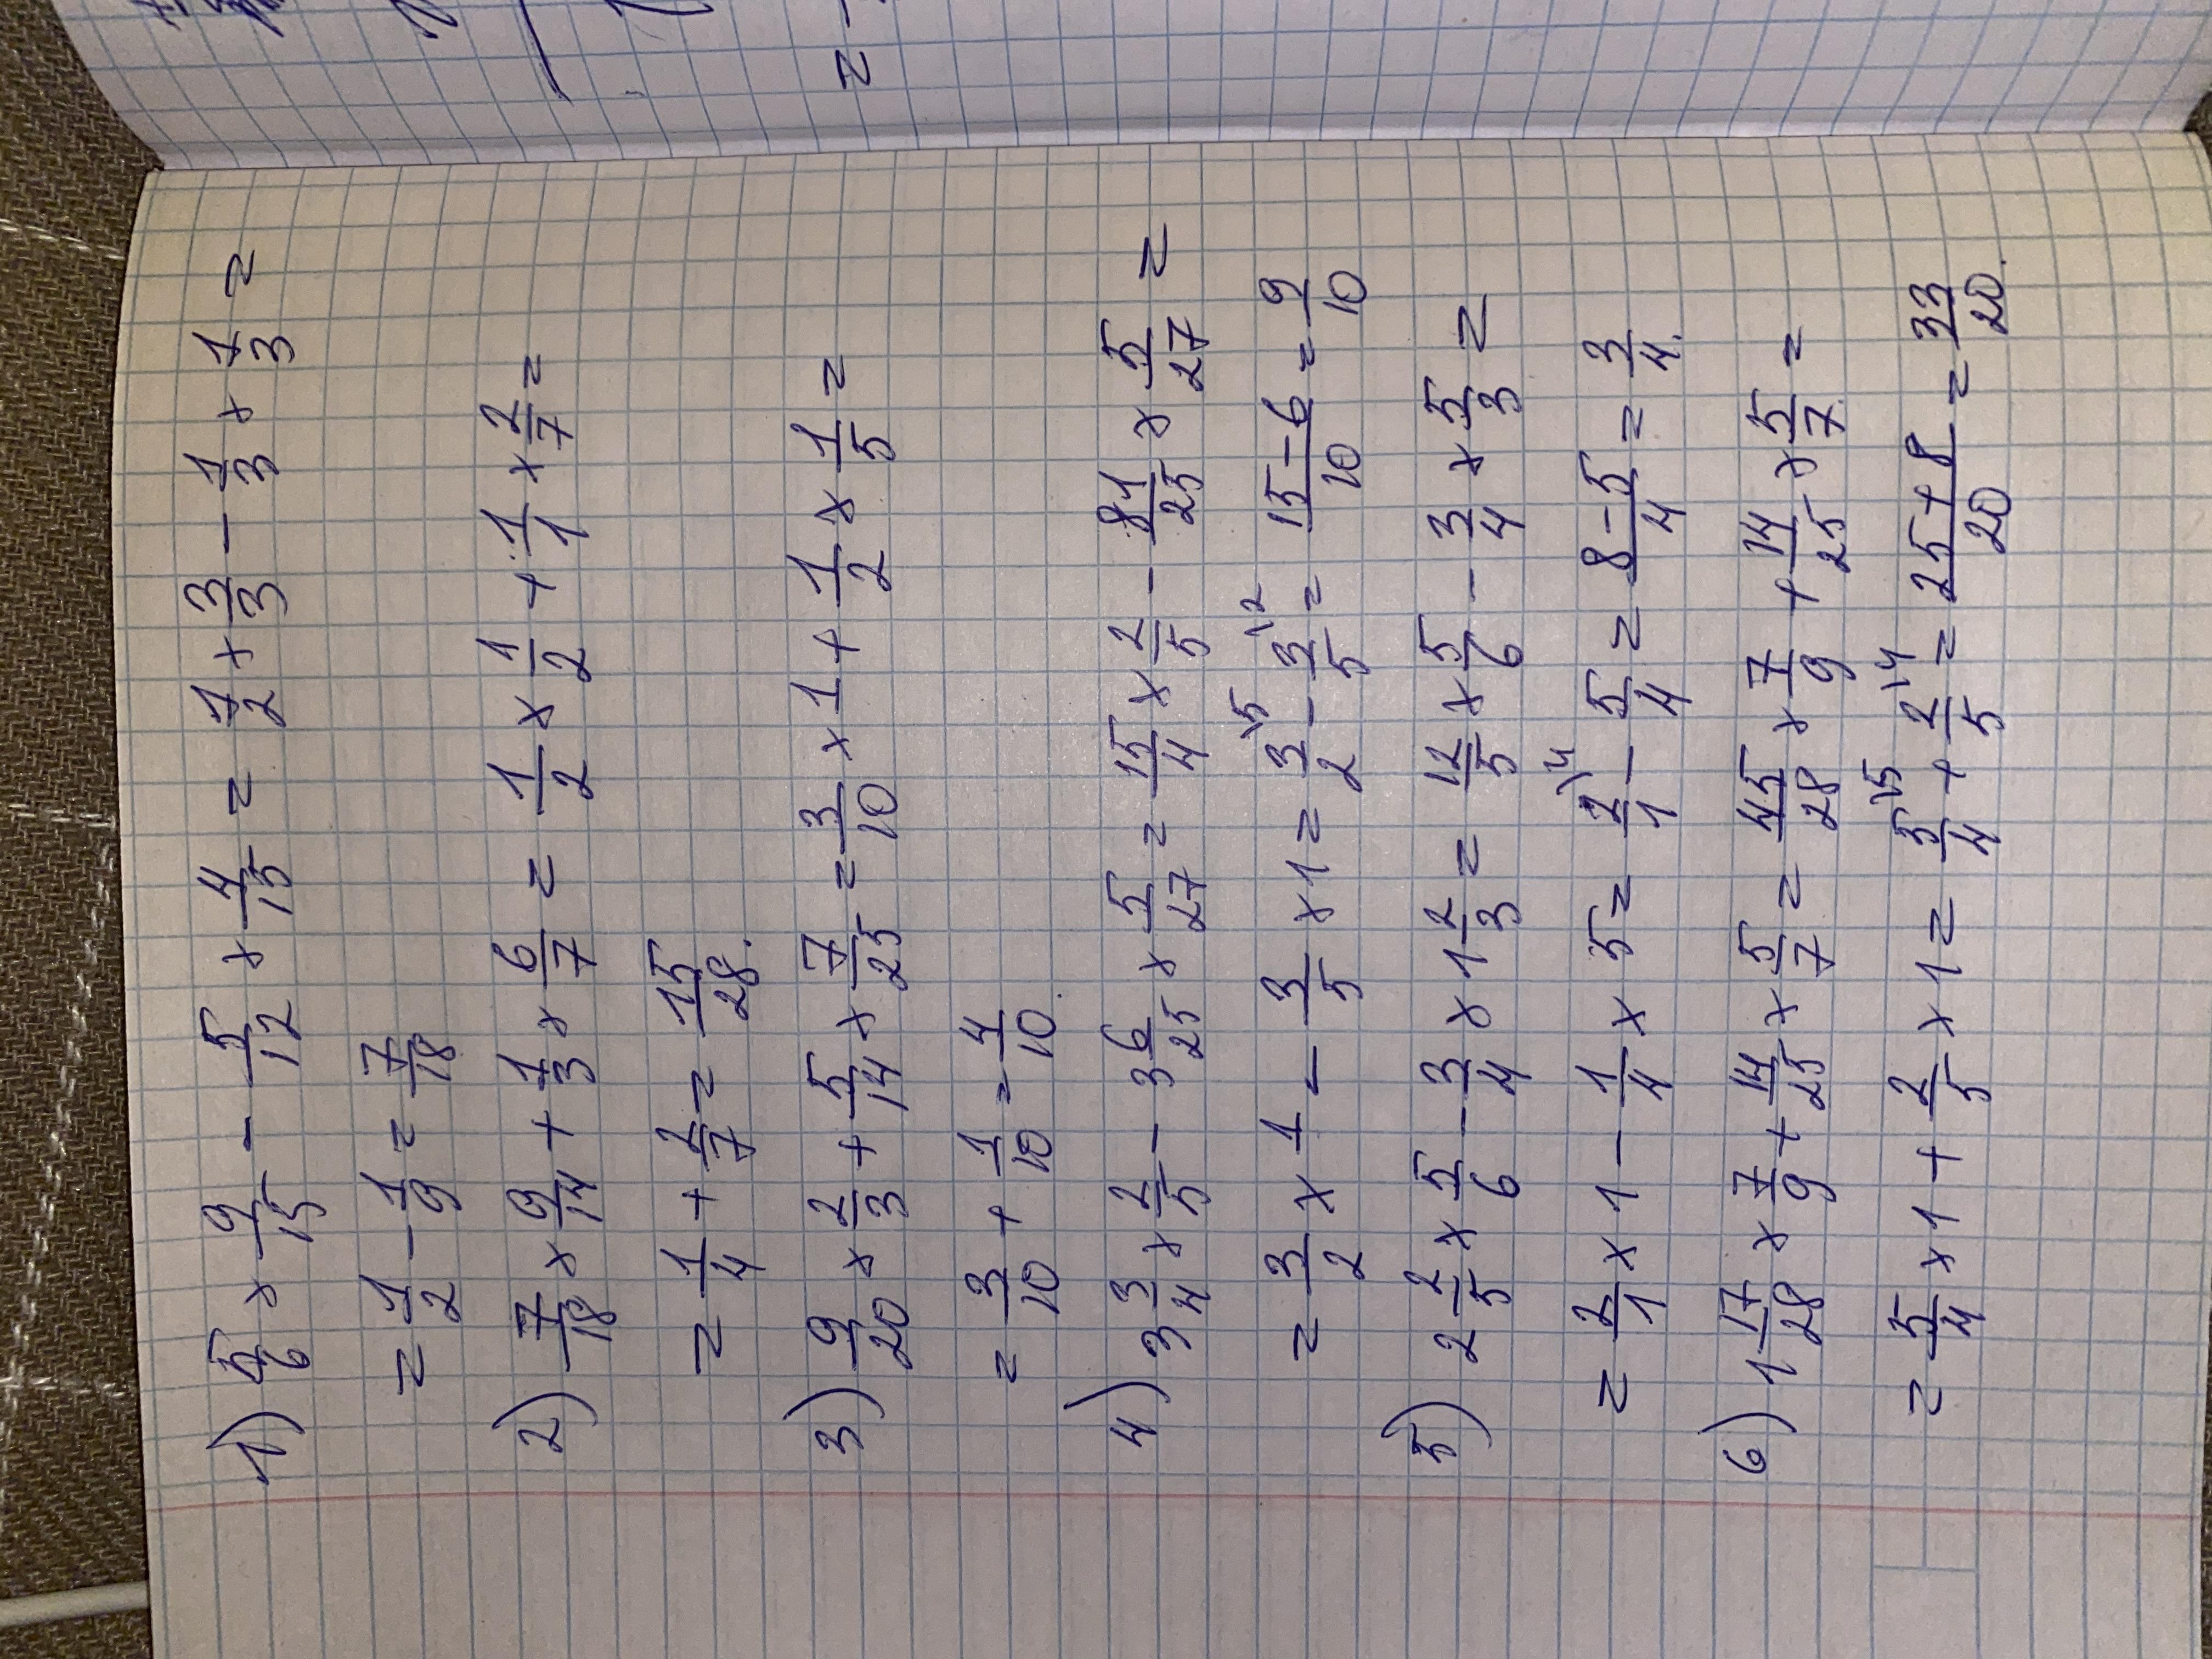 1) 5/6 × 9/15 - 5/12 × 4/15 = 1/2 × 3/3 - 1/3 × 1/3 =
= 1/2 - 1/9 = 7/18
2) 7/18 × 9/14 + 1/3 × 6/7 = 1/2 × 1/2 + 1/1 × 2/7 =
= 1/4 + 2/7 = 15/28.
3) 9/20 × 2/3 + 5/14 × 7/25 = 3/10 × 1 + 1/2 × 1/5 =
= 3/10 + 1/10 = 4/10.
4) 3 3/4 × 2/5 - 3 6/25 × 5/27 = 15/4 × 2/5 - 81/25 × 5/27 =
= 3/2 × 1 - 3/5 × 1 = 3/2 \5 - 3/5 \2 = 15-6/10 = 9/10
5) 2 2/5 × 5/6 - 3/4 × 1 2/3 = 12/5 × 5/6 - 3/4 × 5/3 =
= 2/1 × 1 - 1/4 × 5 = 2/1 \4 - 5/4 = 8-5/4 = 3/4.
6) 1 17/28 × 7/9 + 14/25 × 5/7 = 45/28 × 7/9 + 14/25 × 5/7 =
= 5/4 × 1 + 2/5 × 1 = 5/4 \5 + 2/5 \4 = 25+8/20 = 33/20.
= -